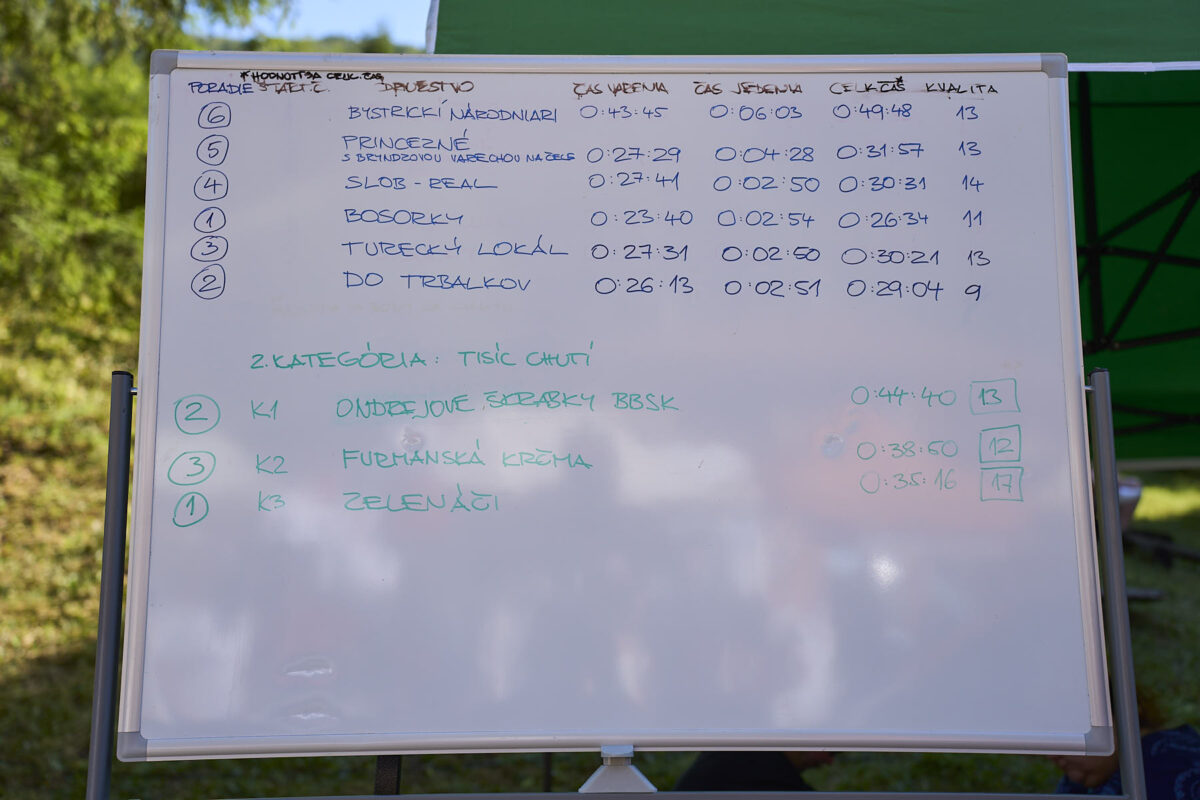 * HODNOTÍ SA CELK. ČAS
PORADIE ŠTART.Č. DRUŽSTVO ČAS VARENIA ČAS JEDENIA CELK.ČAS* KVALITA
6 BYSTRICKÍ NÁRODNIARI 0:43:45 0:06:03 0:49:48 13
5 PRINCEZNÉ
S BRYNDZOVOU VARECHOU NA ČELE 0:27:29 0:04:28 0:31:57 13
4 SLOB-REAL 0:27:41 0:02:50 0:30:31 14
1 BOSORKY 0:23:40 0:02:54 0:26:34 11
3 TURECKÝ LOKÁL 0:27:31 0:02:50 0:30:21 13
2 DO TRBALKOV 0:26:13 0:02:51 0:29:04 9
2. KATEGÓRIA: TISÍC CHUTÍ
2 K1 ONDREJOVE ŠKRABKY BBSK 0:44:40 13
3 K2 FURMANSKÁ KRČMA 0:38:50 12
1 K3 ZELENÁČI 0:35:16 17